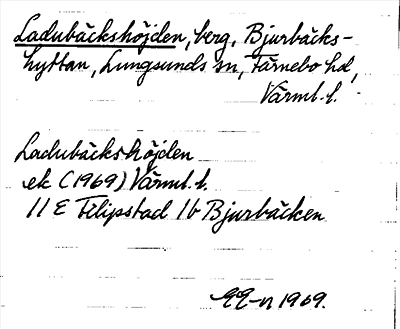 Ladubäckshöjden, berg, Bjurbäcks-
hyttan, Lungsunds sn, Färnebo hd,
Värml. l.
Ladubäckshöjden
ek (1969) Värml. l.
11 E Filipstad 1b Bjurbäcken
1969.